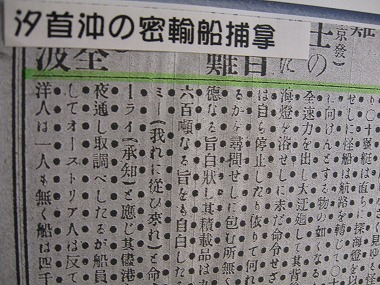 汐首沖の密輸船捕拿
せしに怪船は航路を轉じて〇十
に向けんとする物の如くなる
全速力を出し大迂廻して其背
海燈を浴せしに未だ命令せざ
は自ら停止したり依りて何れ
るかを尋問せしに包む所無く
德なる旨白狀し其積載品は九
六百噸なる旨をも自白したる
ミー(我れに從ひ來れ)と命
ーライ(承知)と應じ其儘港
夜通し取調べしたるが船員
してオーストリア人は反て
洋人は一人も無く船は四